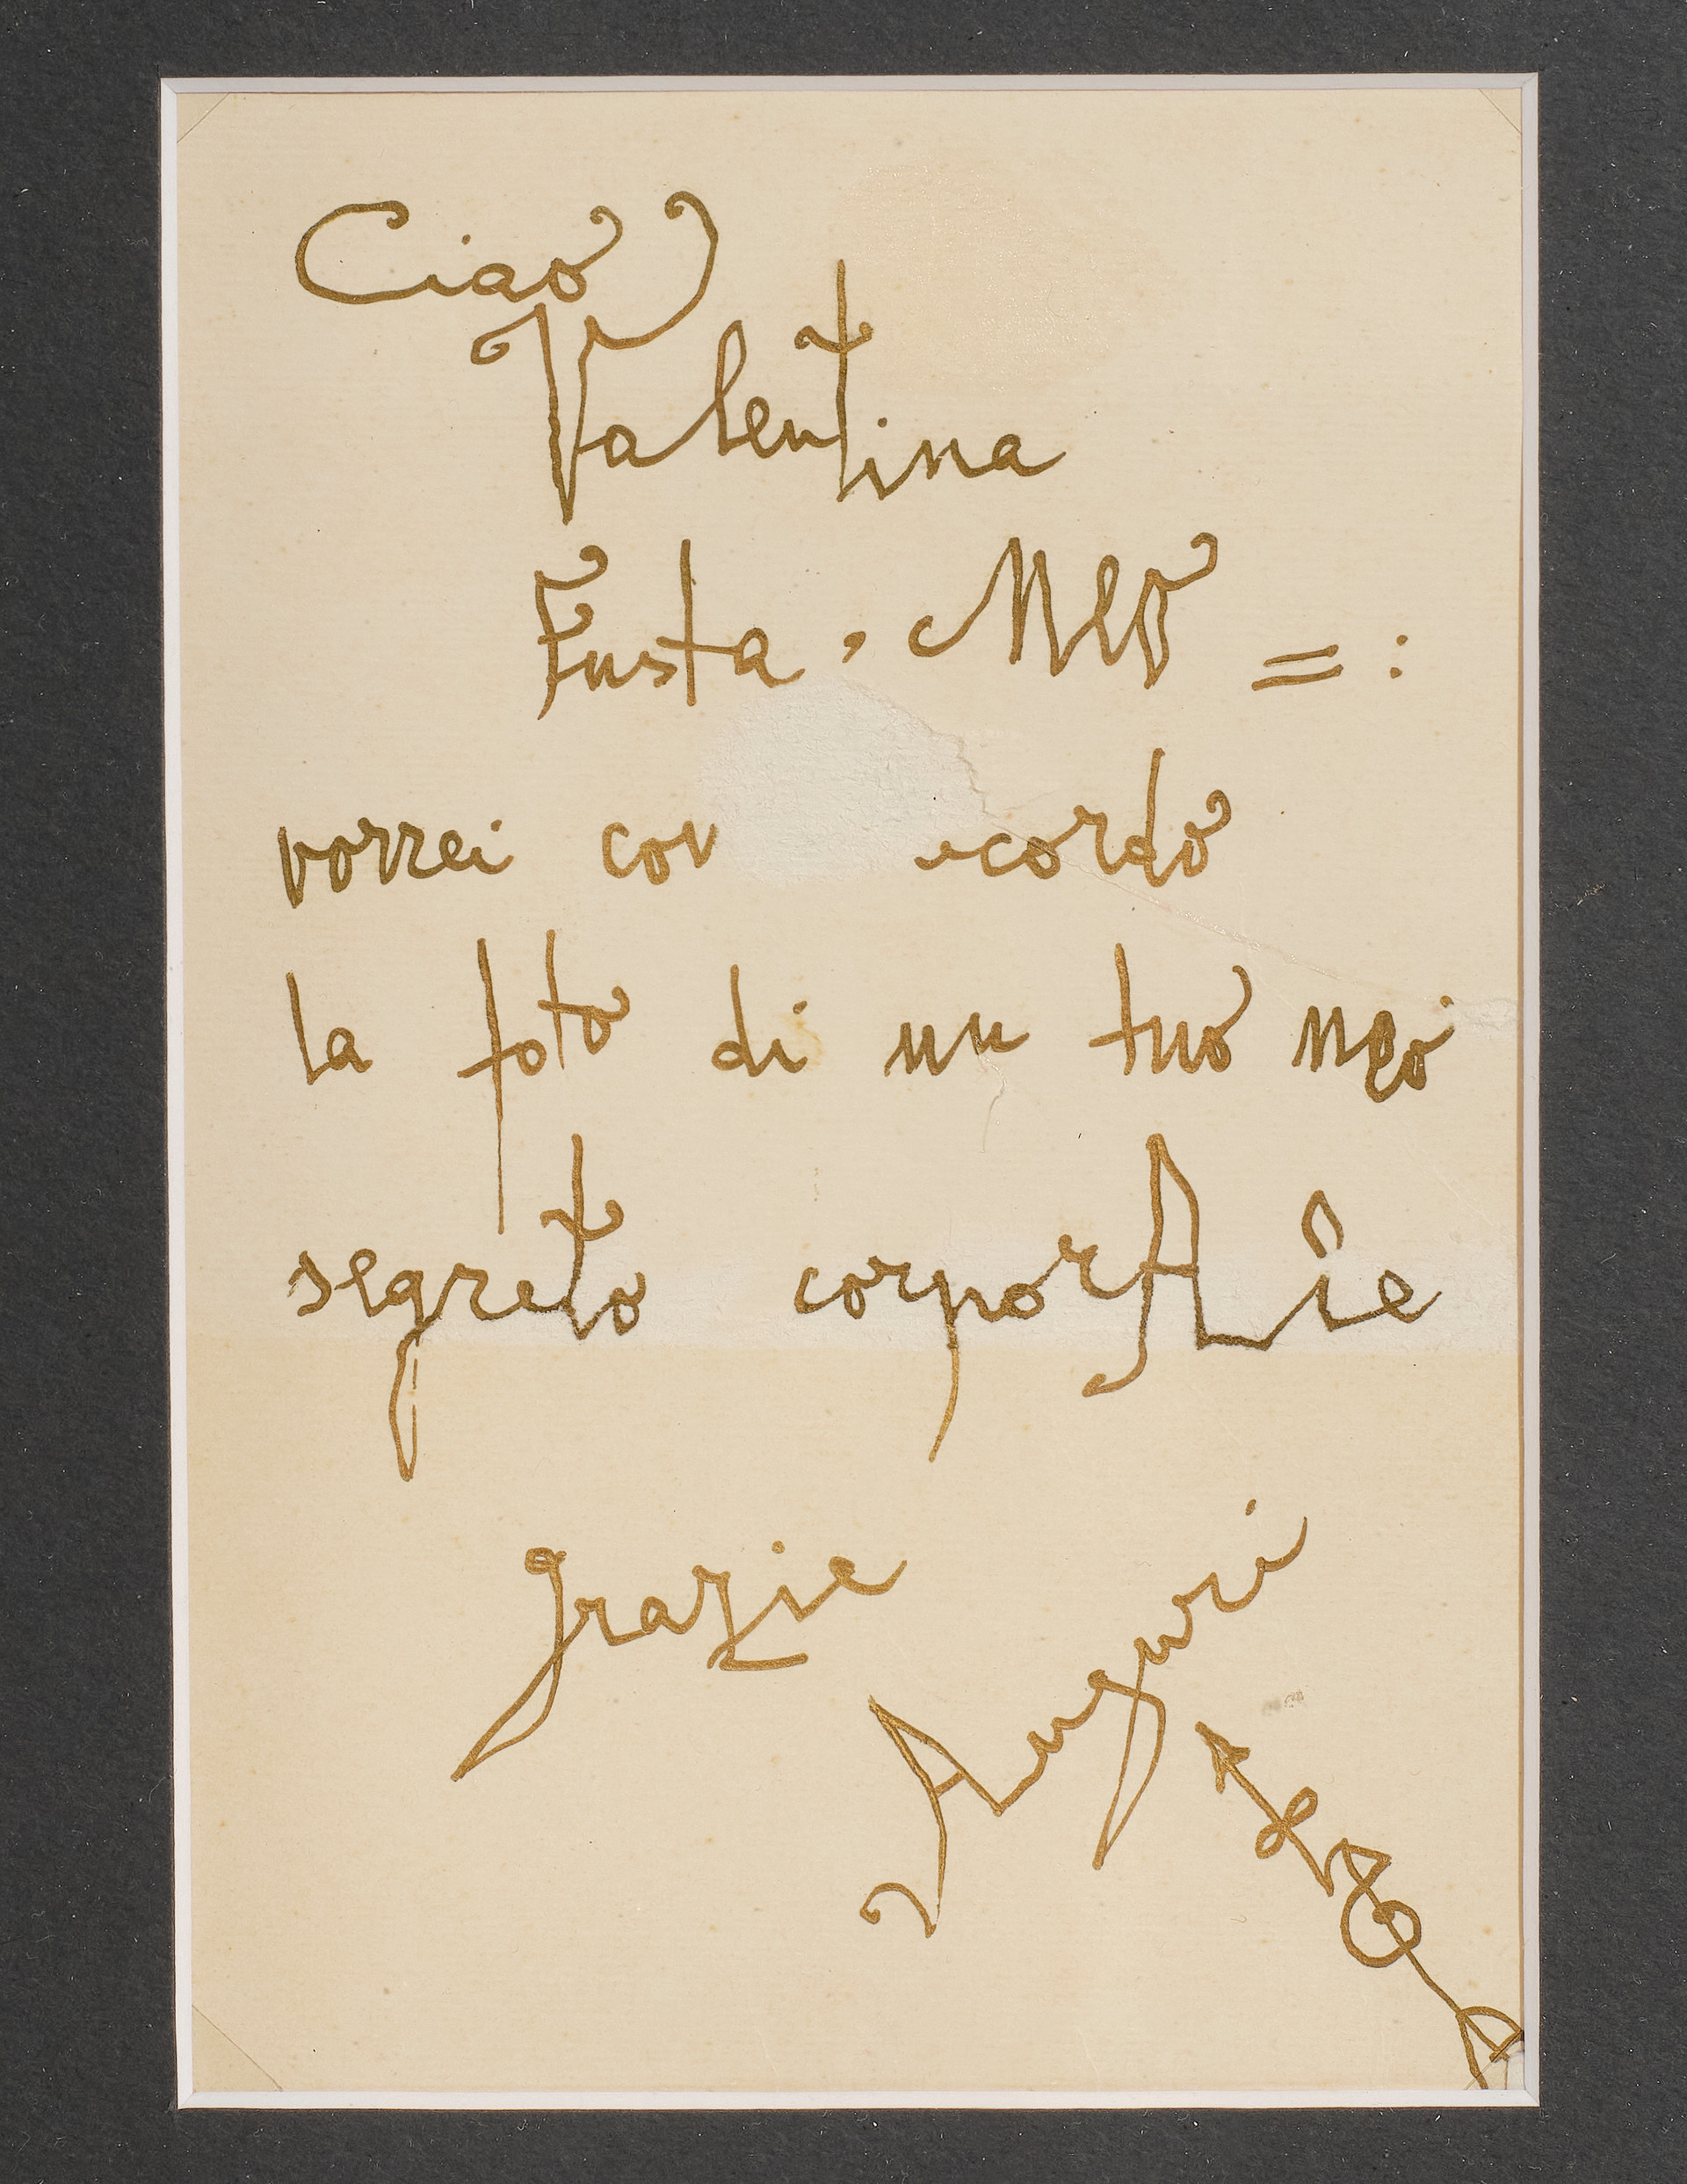 Ciao
Valentina
Fusta, Neo = :
vorrei co cordo
la foto di un tuo neo
segreto corporAle
grazie
Auguri